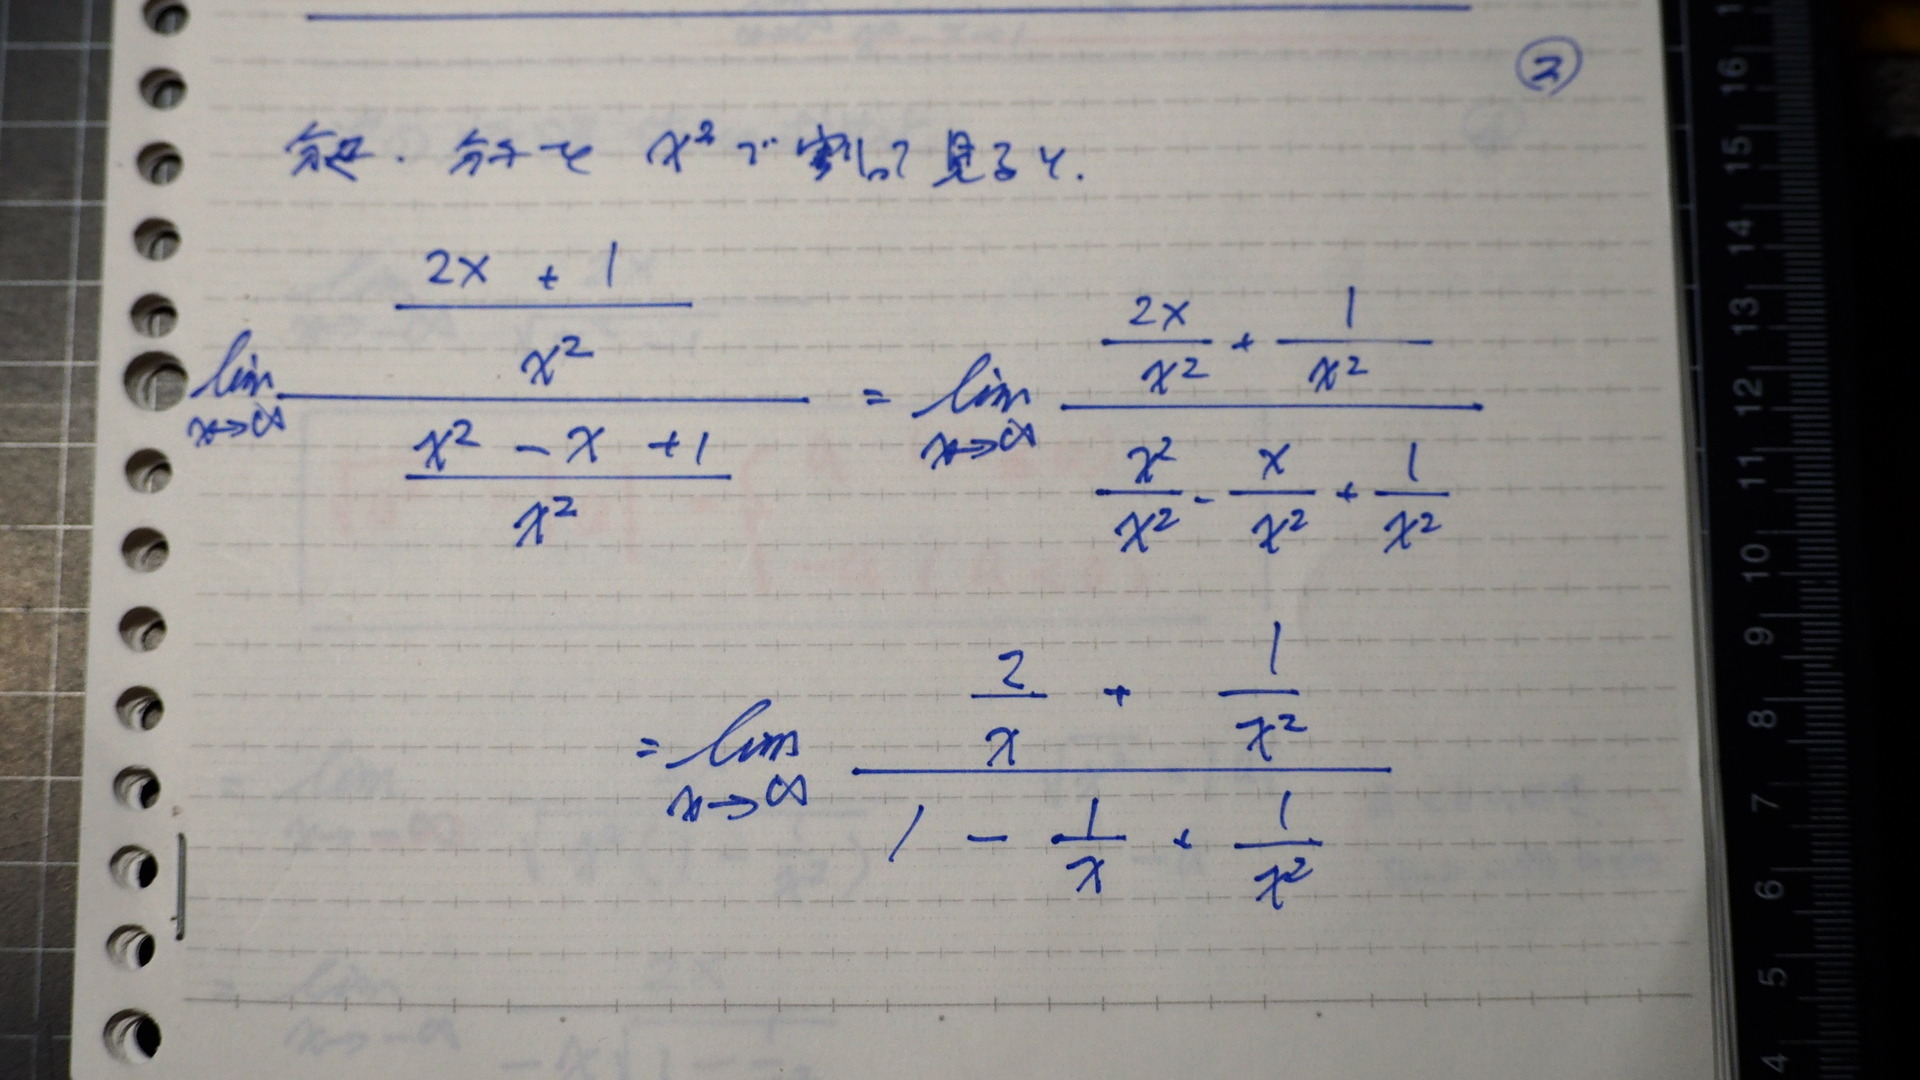 ②
分母、分子を x² で割って見ると、
lim x→∞ ((2x + 1)/x²)/((x² - x + 1)/x²) = lim x→∞ (2x/x² + 1/x²)/(x²/x² - x/x² + 1/x²)
= lim x→∞ (2/x + 1/x²)/(1 - 1/x + 1/x²)
16
15
14
13
12
11
10
9
8
7
6
5
4